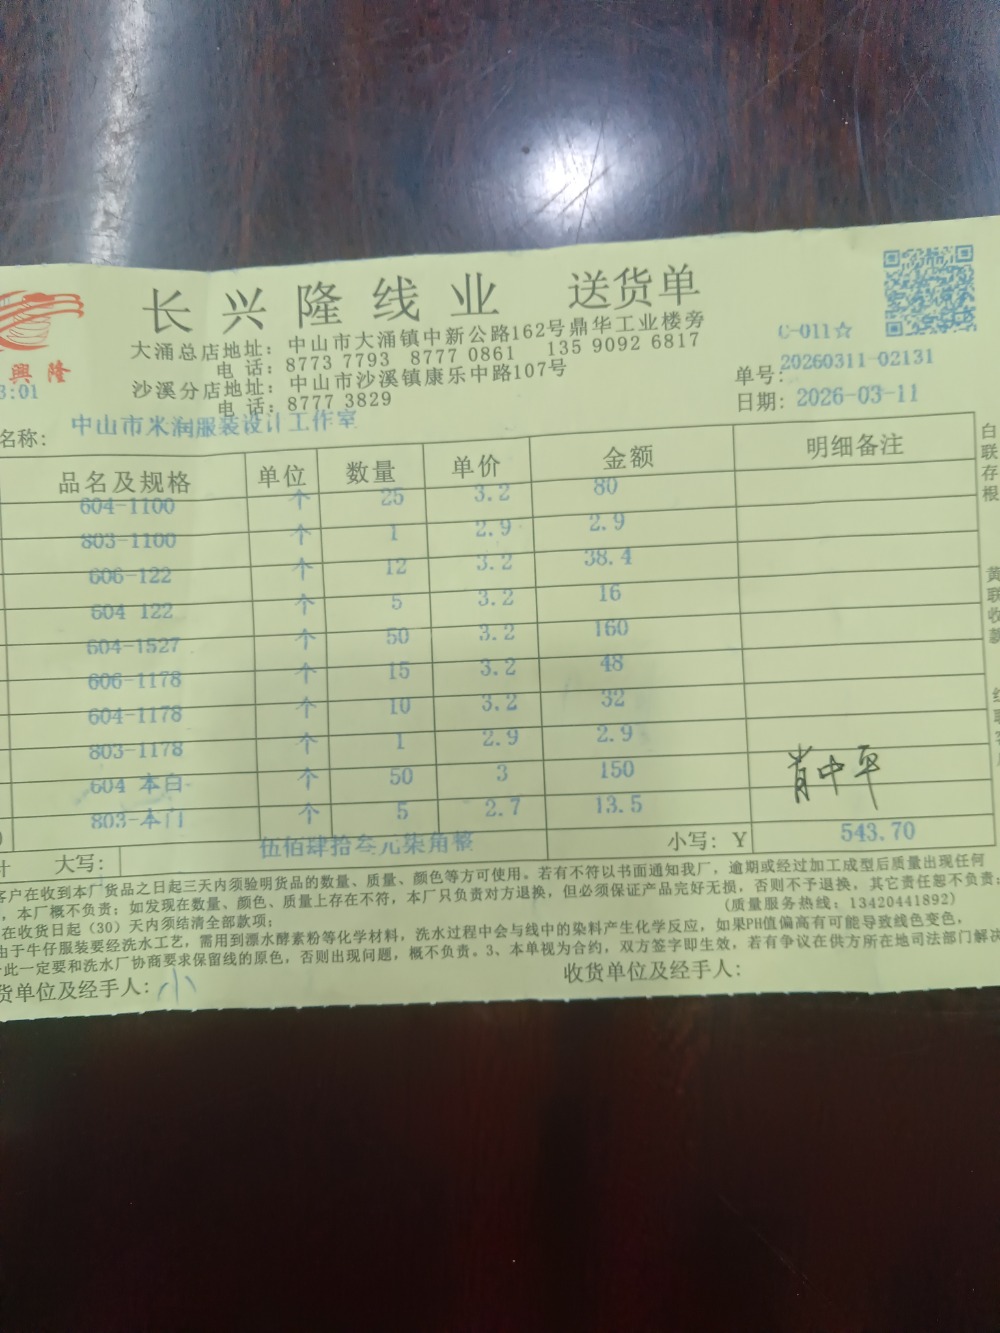 長興隆线业 送货单
C-011☆
大涌总店地址：中山市大涌镇中新公路162号鼎华工业楼旁
电 话：8773 7793 8777 0861 135 9092 6817
沙溪分店地址：中山市沙溪镇康乐中路107号
电 话：8777 3829
興隆
3:01
单号：20260311-02131
日期：2026-03-11
名称：中山市米润服装设计工作室
品名及规格 单位 数量 单价 金额 明细备注
604-1100 个 25 3.2 80
803-1100 个 1 2.9 2.9
606-122 个 12 3.2 38.4
604 122 个 5 3.2 16
604-1527 个 50 3.2 160
606-1178 个 15 3.2 48
604-1178 个 10 3.2 32
803-1178 个 1 2.9 2.9
604 本白 个 50 3 150
803-本门 个 5 2.7 13.5
肖中平
计 大写：伍佰肆拾叁元柒角整 小写：Y 543.70
客户在收到本厂货品之日起三天内须验明货品的数量、质量、颜色等方可使用。若有不符以书面通知我厂，逾期或经过加工成型后质量出现任何
，本厂概不负责；如发现在数量、颜色、质量上存在不符，本厂只负责对方退换，但必须保证产品完好无损，否则不予退换，其它责任恕不负责；
在收货日起（30）天内须结清全部款项； （质量服务热线：13420441892）
由于牛仔服装要经洗水工艺，需用到漂水酵素粉等化学材料，洗水过程中会与线中的染料产生化学反应，如果PH值偏高有可能导致线色变色，
此一定要和洗水厂协商要求保留线的原色，否则出现问题，概不负责。3、本单视为合约，双方签字即生效，若有争议在供方所在地司法部门解决
货单位及经手人：小 收货单位及经手人：
白联存根
黄联收款